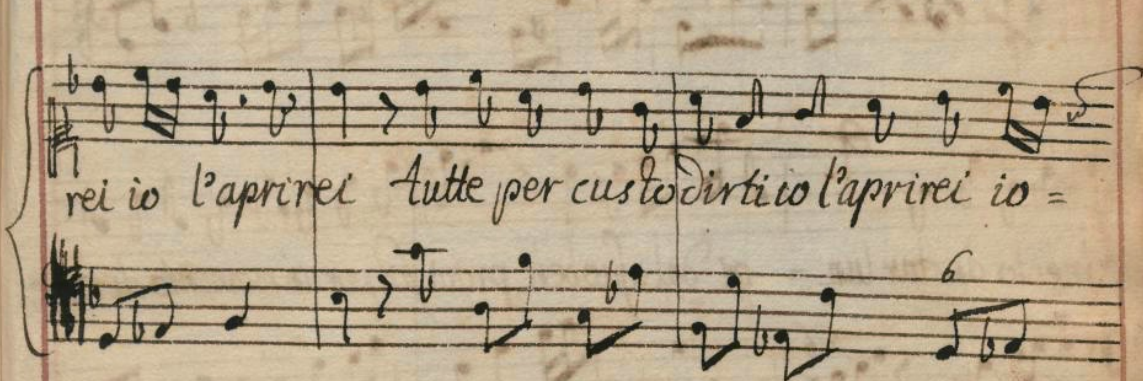 rei io l'aprirei tutte per custodirti io l'aprirei io =
6